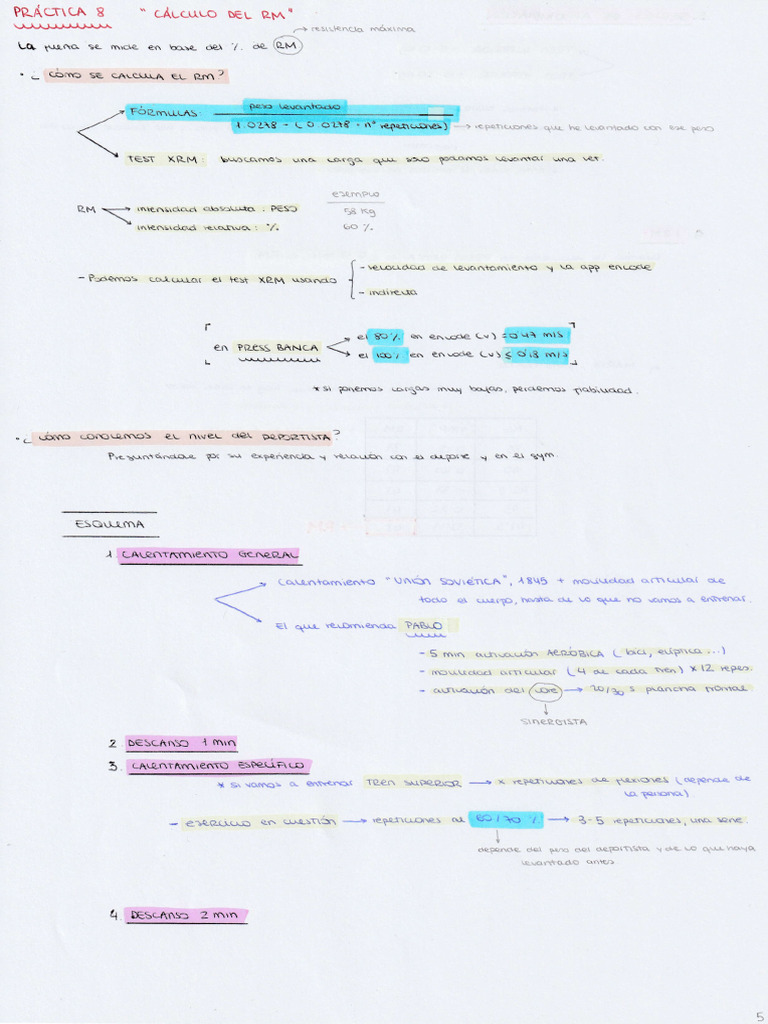 PRÁCTICA 8 "CÁLCULO DEL RM"
→ resistencia máxima
La fuerza se mide en base del % de RM
• ¿CÓMO SE CALCULA EL RM?
FÓRMULAS: peso levantado
1.0278 - (0.0278 · nº repeticiones) → repeticiones que he levantado con ese peso
TEST XRM: buscamos una carga que solo podamos levantar una vez.
EJEMPLO
RM → intensidad absoluta: PESO 58 Kg
→ intensidad relativa: % 60 %
- Podemos calcular el test XRM usando
- velocidad de levantamiento y la app encode
- indirecta
en PRESS BANCA
el 80% en encode (v) = 0'47 m/s
el 100% en encode (v) ≤ 0'18 m/s
* si ponemos cargas muy bajas, perdemos fiabilidad.
• ¿CÓMO CONOCEMOS EL NIVEL DEL DEPORTISTA?
Preguntándole por su experiencia y relación con el deporte y en el gym.
ESQUEMA
1. CALENTAMIENTO GENERAL
Calentamiento "UNIÓN SOVIÉTICA", 1845 + movilidad articular de
todo el cuerpo, hasta de lo que no vamos a entrenar.
El que recomienda PABLO
- 5 min activación AERÓBICA (bici, elíptica ...)
- movilidad articular (4 de cada tren) x 12 repes.
- activación del core → 20/30 s plancha frontal
SINERGISTA
2. DESCANSO 1 min
3. CALENTAMIENTO ESPECÍFICO
* si vamos a entrenar TREN SUPERIOR → x repeticiones de flexiones (depende de
la persona)
- ejercicio en cuestión → repeticiones al 60/70 % → 3-5 repeticiones, una serie.
depende del peso del deportista y de lo que haya
levantado antes.
4. DESCANSO 2 min
5